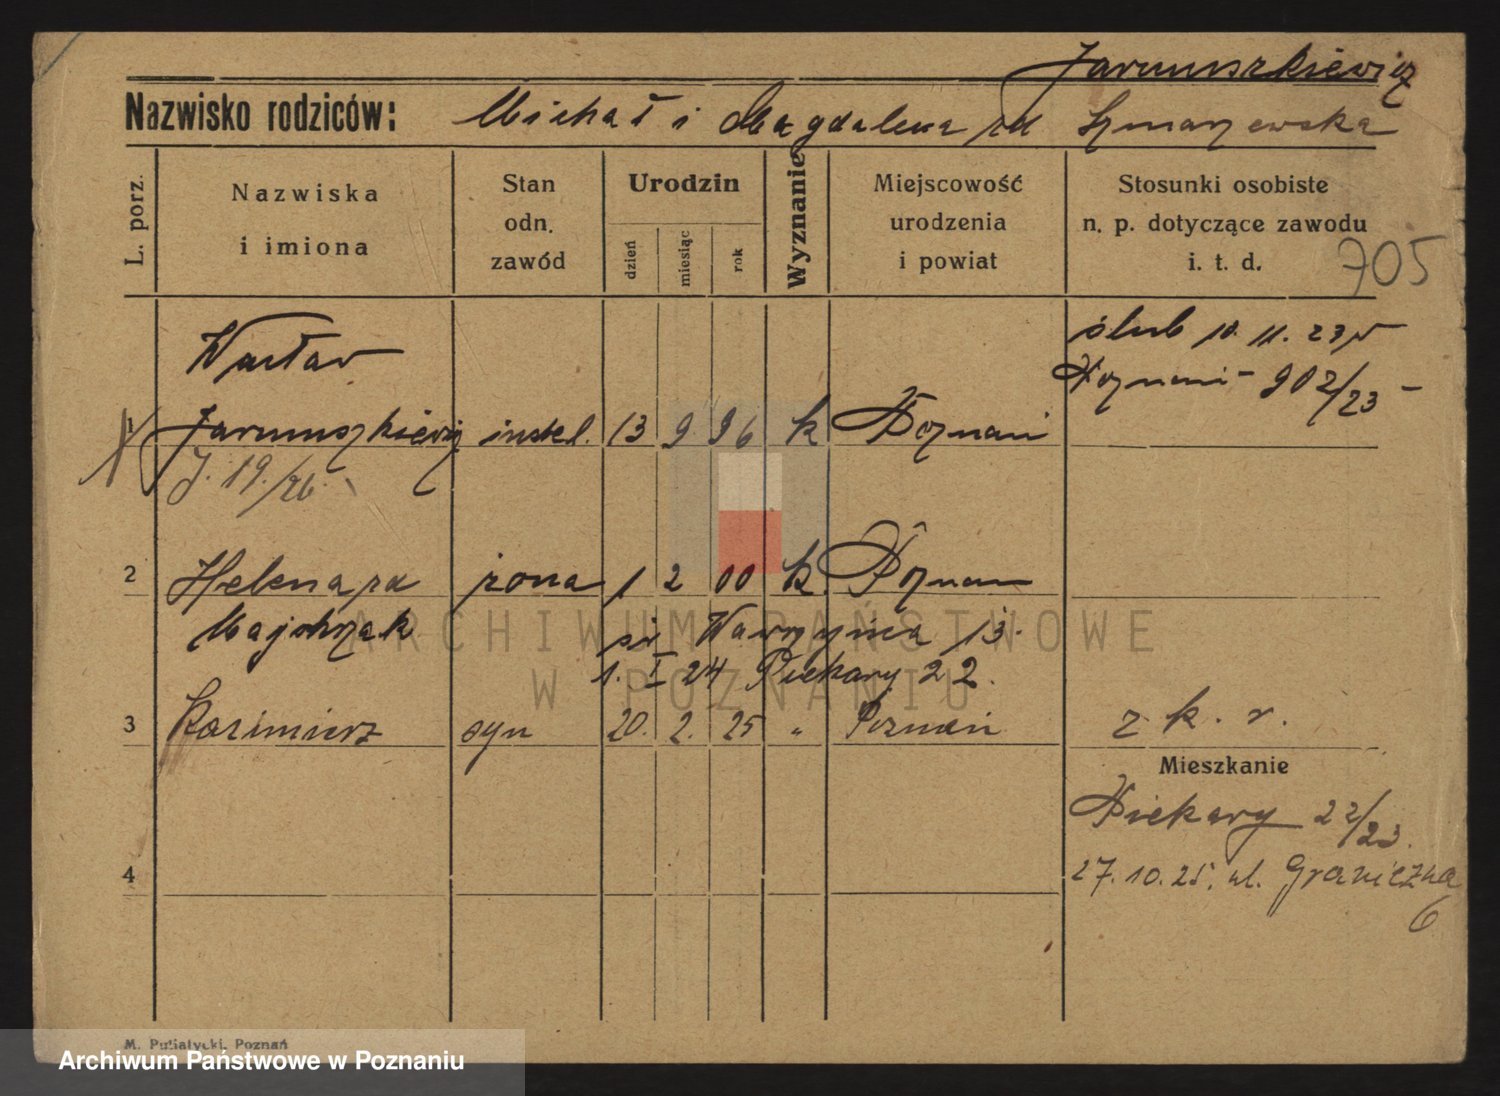 Jarmuszkiewicz
Nazwisko rodziców: Michał i Magdalena zd Szmaszewska
L. porz.
Nazwiska i imiona
Stan odn. zawód
Urodzin
dzień
miesiąc
rok
Wyznanie
Miejscowość urodzenia i powiat
Stosunki osobiste n. p. dotyczące zawodu i. t. d.
705
Wacław
ślub 10. 11. 23 w
Poznaniu - 902/23 -
1 Jarmuszkiewicz instal. 13 9 96 k Poznań
J. 19./26.
2 Helena zd żona 1 2 00 k. Poznań
Majchrzak św Wawrzyńca 13.
1. I 24 Piekary 22.
3 Kazimierz syn 20. 2. 25 " Poznań z k. r.
Mieszkanie
Piekary 22/23.
4
27. 10. 25. ul. Graniczna
6
ARCHIWUM PAŃSTWOWE
W POZNANIU
M. Putiatycki, Poznań
Archiwum Państwowe w Poznaniu